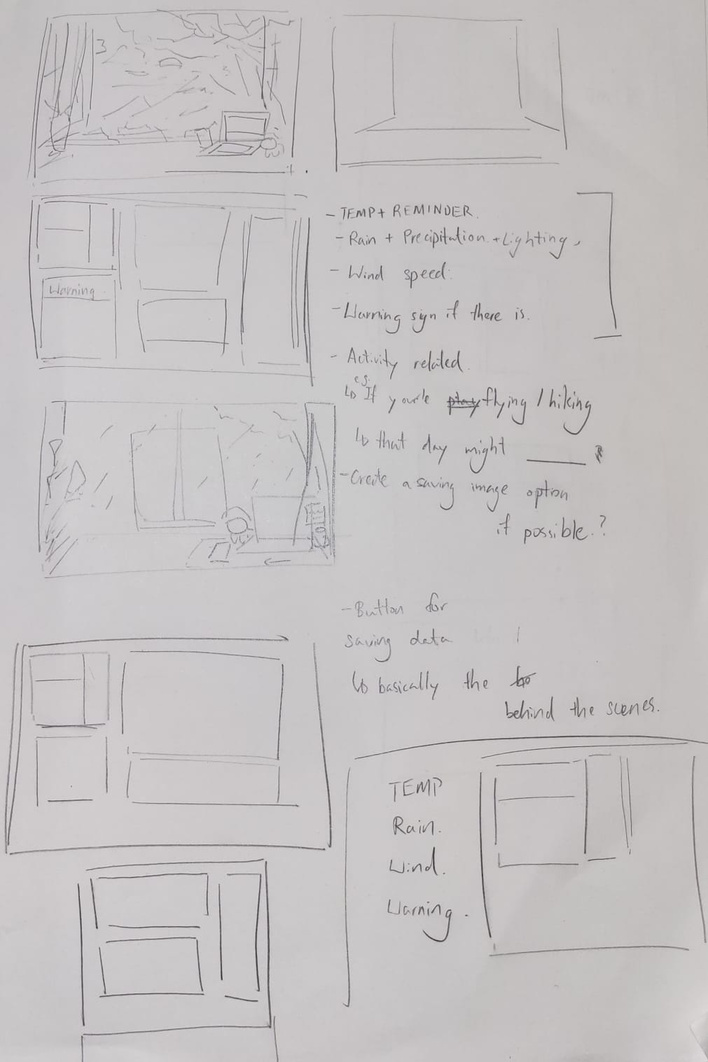 - TEMP + REMINDER.
- Rain + Precipitation + Lighting,
- Wind speed.
Warning
- Warning sign if there is.
- Activity related.
e.g.
↳ If you're flying / hiking
↳ that day might ______
- Create a saving image option
if possible.?
- Button for
saving data
↳ basically the
behind the scenes.
TEMP
Rain.
Wind.
Warning.